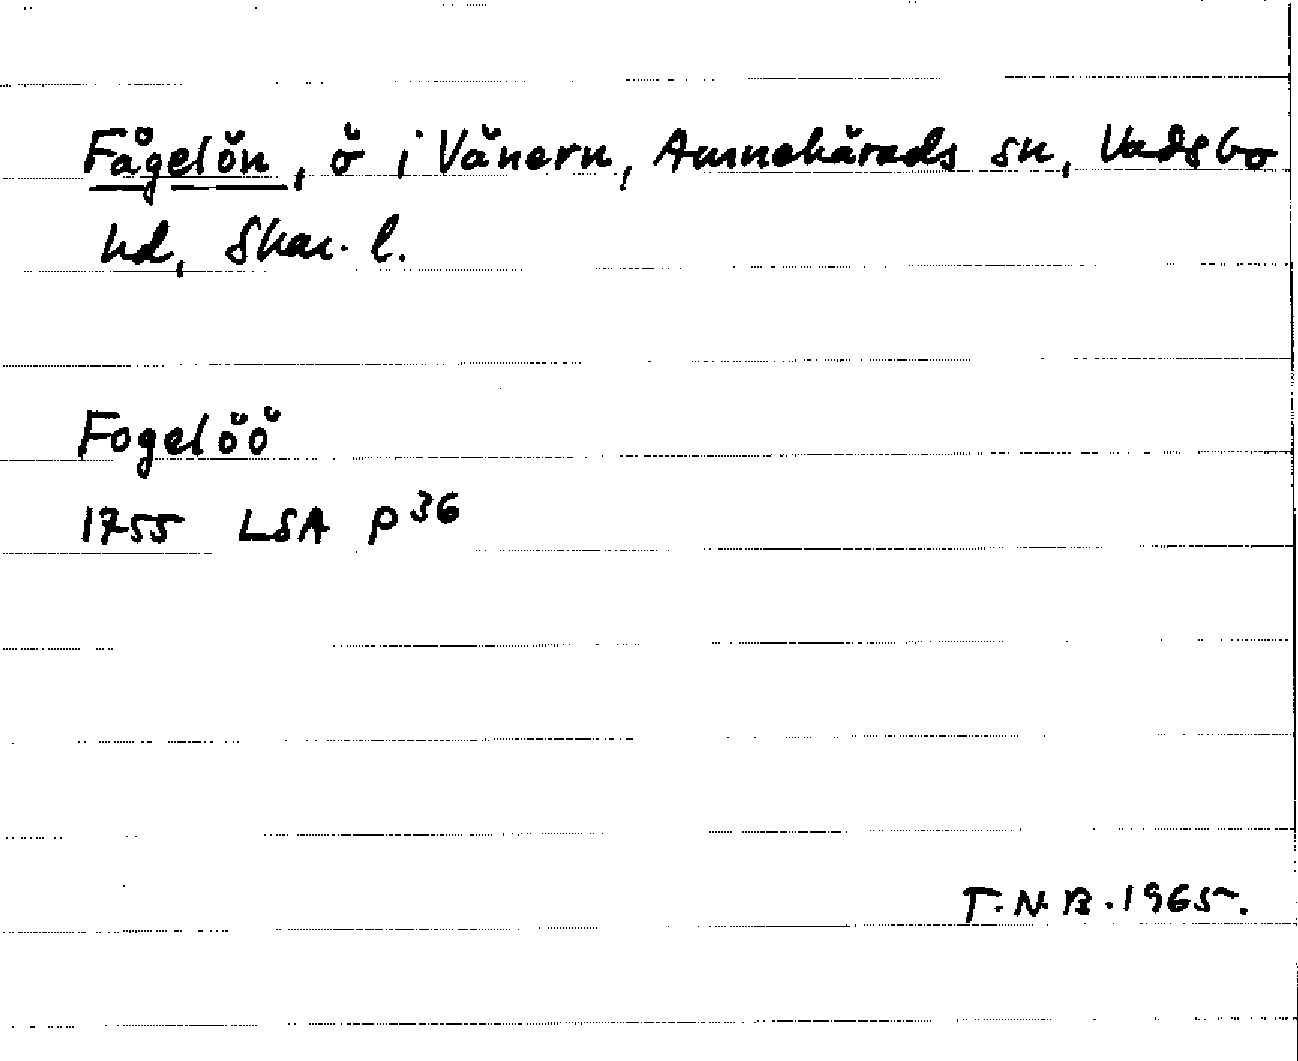 Fågelön, ö i Vänern, Amnehärads sn, Vadsbo
hd, Skar. l.
Fogelöö
1755 LSA P 36
T.N.B. 1965.